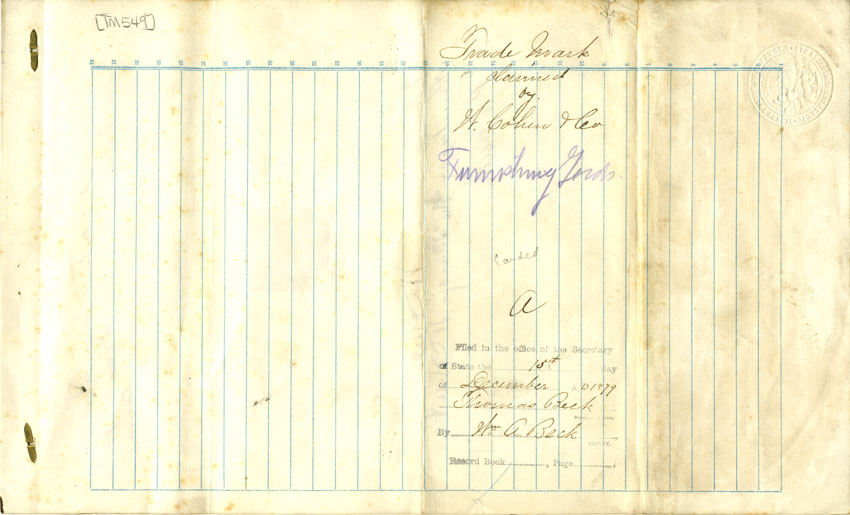 [TM549]
Trade Mark
claimed
by
H. Cohen & Co
Furnishing Goods
Carded
A
Filed in the office of the Secretary
of State the 15th day
of December A D 1879
Thomas Beck
By Wm A. Beck
Record Book , Page ,